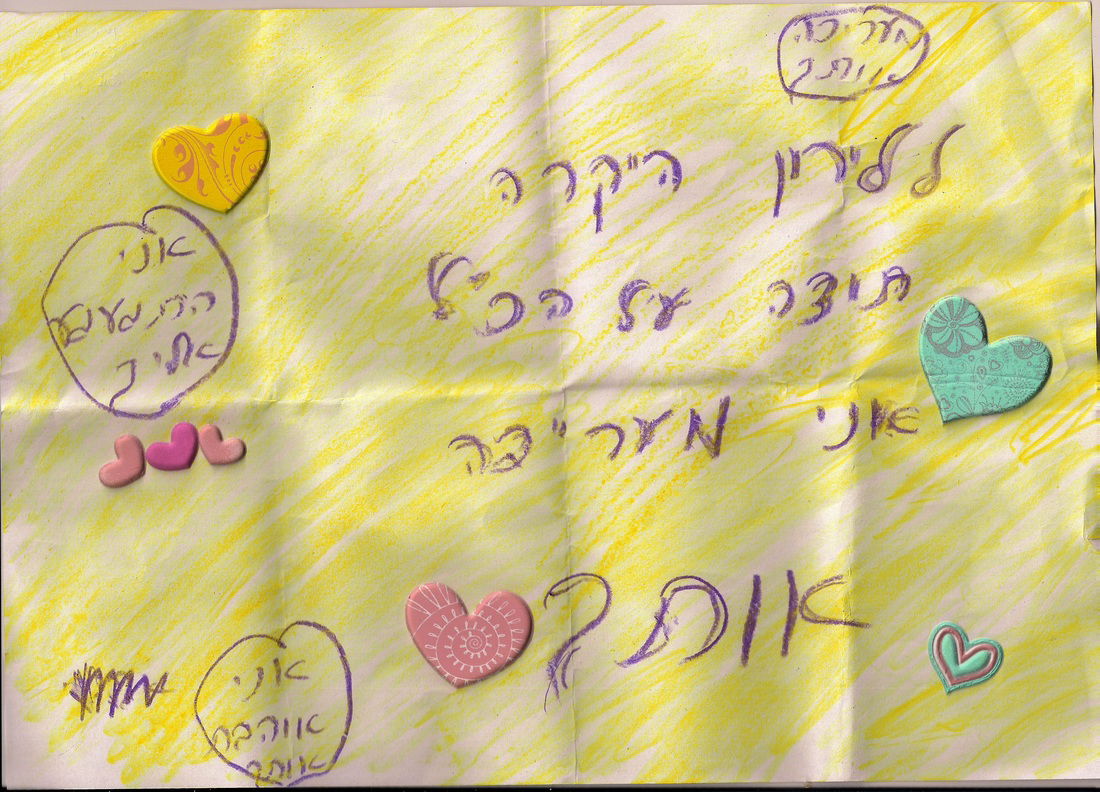 מעריכה
אוותך
ללירון הייקרה
תודה על הכ"ל
אני מערייכה
אוותך
אני
אליך
אני
אווהבת
אותך